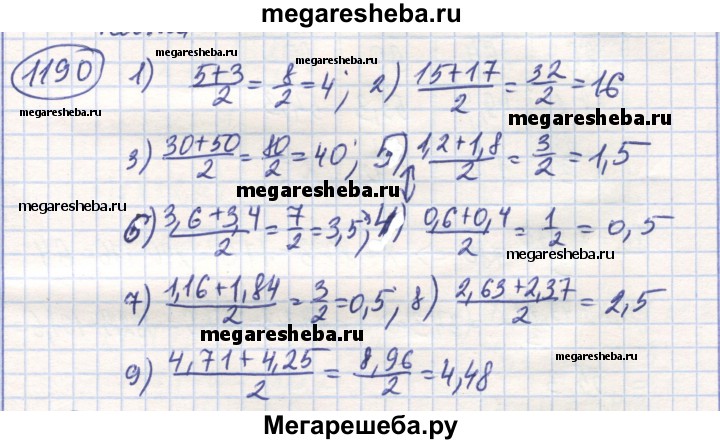 megaresheba.ru
1190 1) (5+3)/2 = 8/2 = 4; 2) (15+17)/2 = 32/2 = 16
megaresheba.ru megaresheba.ru megaresheba.ru
megaresheba.ru
3) (30+50)/2 = 80/2 = 40; 5) (1,2+1,8)/2 = 3/2 = 1,5
megaresheba.ru
megaresheba.ru
6) (3,6+3,4)/2 = 7/2 = 3,5; 4) (0,6+0,4)/2 = 1/2 = 0,5
megaresheba.ru
7) (1,16+1,84)/2 = 3/2 = 0,5; 8) (2,63+2,37)/2 = 2,5
megaresheba.ru
9) (4,71+4,25)/2 = 8,96/2 = 4,48
megaresheba.ru
Мегарешеба.ру